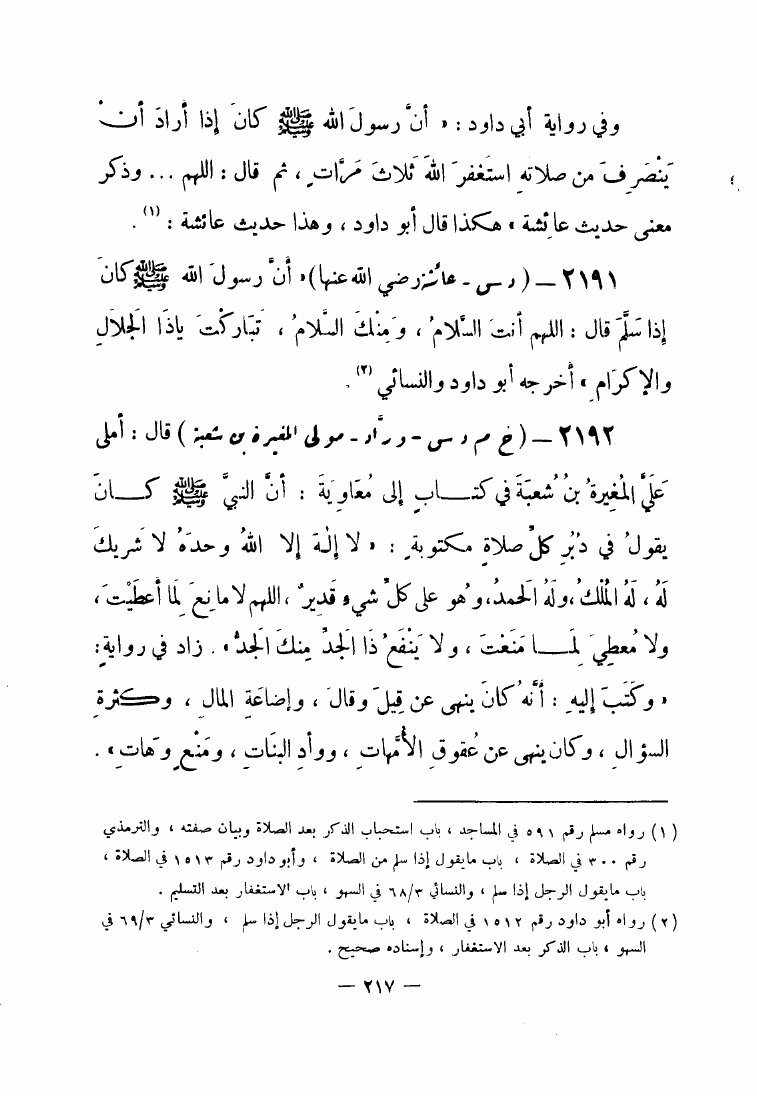 وفي رواية أبي داود : « أنَّ رسولَ الله ﷺ كانَ إذا أرادَ أن
يَنْصَرِفَ من صلاتهِ استَغفرَ اللهَ ثلاثَ مَرَّاتٍ ، ثم قال : اللهم ... وذكر
معنى حديث عائشة » هكذا قال أبو داود ، وهذا حديث عائشة : (١) .
٢١٩١ – ( د س - عائشة رضي الله عنها ) « أنَّ رسولَ الله ﷺ كانَ
إذا سَلَّمَ قال : اللهم أنتَ السَّلامُ ، وَمِنْكَ السَّلامُ ، تَبَارَكْتَ ياذَا الْجَلالِ
والإكرَامِ » أخرجه أبو داود والنسائي (٢) .
٢١٩٢ – ( خ م د س - ورَّاد - مولى المغيرة بن شعبة ) قال : أملى
عَلَيَّ المُغيرةُ بنُ شُعبَةَ في كتـــابٍ إلى مُعَاوِيَةَ : أنَّ النبيَّ ﷺ كـــانَ
يقولُ في دُبُرِ كلِّ صلاةٍ مكتوبةٍ : « لا إلهَ إلا اللهُ وحدَهُ لا شريكَ
لَهُ ، لَهُ المُلْكُ ، ولَهُ الحمدُ ، وُهو على كلِّ شيءٍ قديرٌ ، اللهم لا مانِعَ لِمَا أعطَيْتَ ،
ولا مُعطِيَ لِمَـــا مَنَعْتَ ، ولا يَنْفَعُ ذَا الجَدِّ مِنكَ الجَدُّ » . زاد في روايةٍ :
« وكَتَبَ إليهِ : أنَّهُ كانَ ينهى عن قِيلَ وقالَ ، وإضاعَةِ المالِ ، وكثرةِ
السؤالِ ، وكان ينهى عن عُقوقِ الأُمَّهاتِ ، ووأدِ البنَاتِ ، ومَنْعٍ وَهَاتِ » .
(١) رواه مسلم رقم ٥٩١ في المساجد ، باب استحباب الذكر بعد الصلاة وبيان صفته ، والترمذي
رقم ٣٠٠ في الصلاة ، باب مايقول إذا سلم من الصلاة ، وأبو داود رقم ١٥١٣ في الصلاة ،
باب مايقول الرجل إذا سلم ، والنسائي ٦٨/٣ في السهو ، باب الاستغفار بعد التسليم .
(٢) رواه أبو داود رقم ١٥١٢ في الصلاة ، باب مايقول الرجل إذا سلم ، والنسائي ٦٩/٣ في
السهو ، باب الذكر بعد الاستغفار ، وإسناده صحيح .
– ٢١٧ –